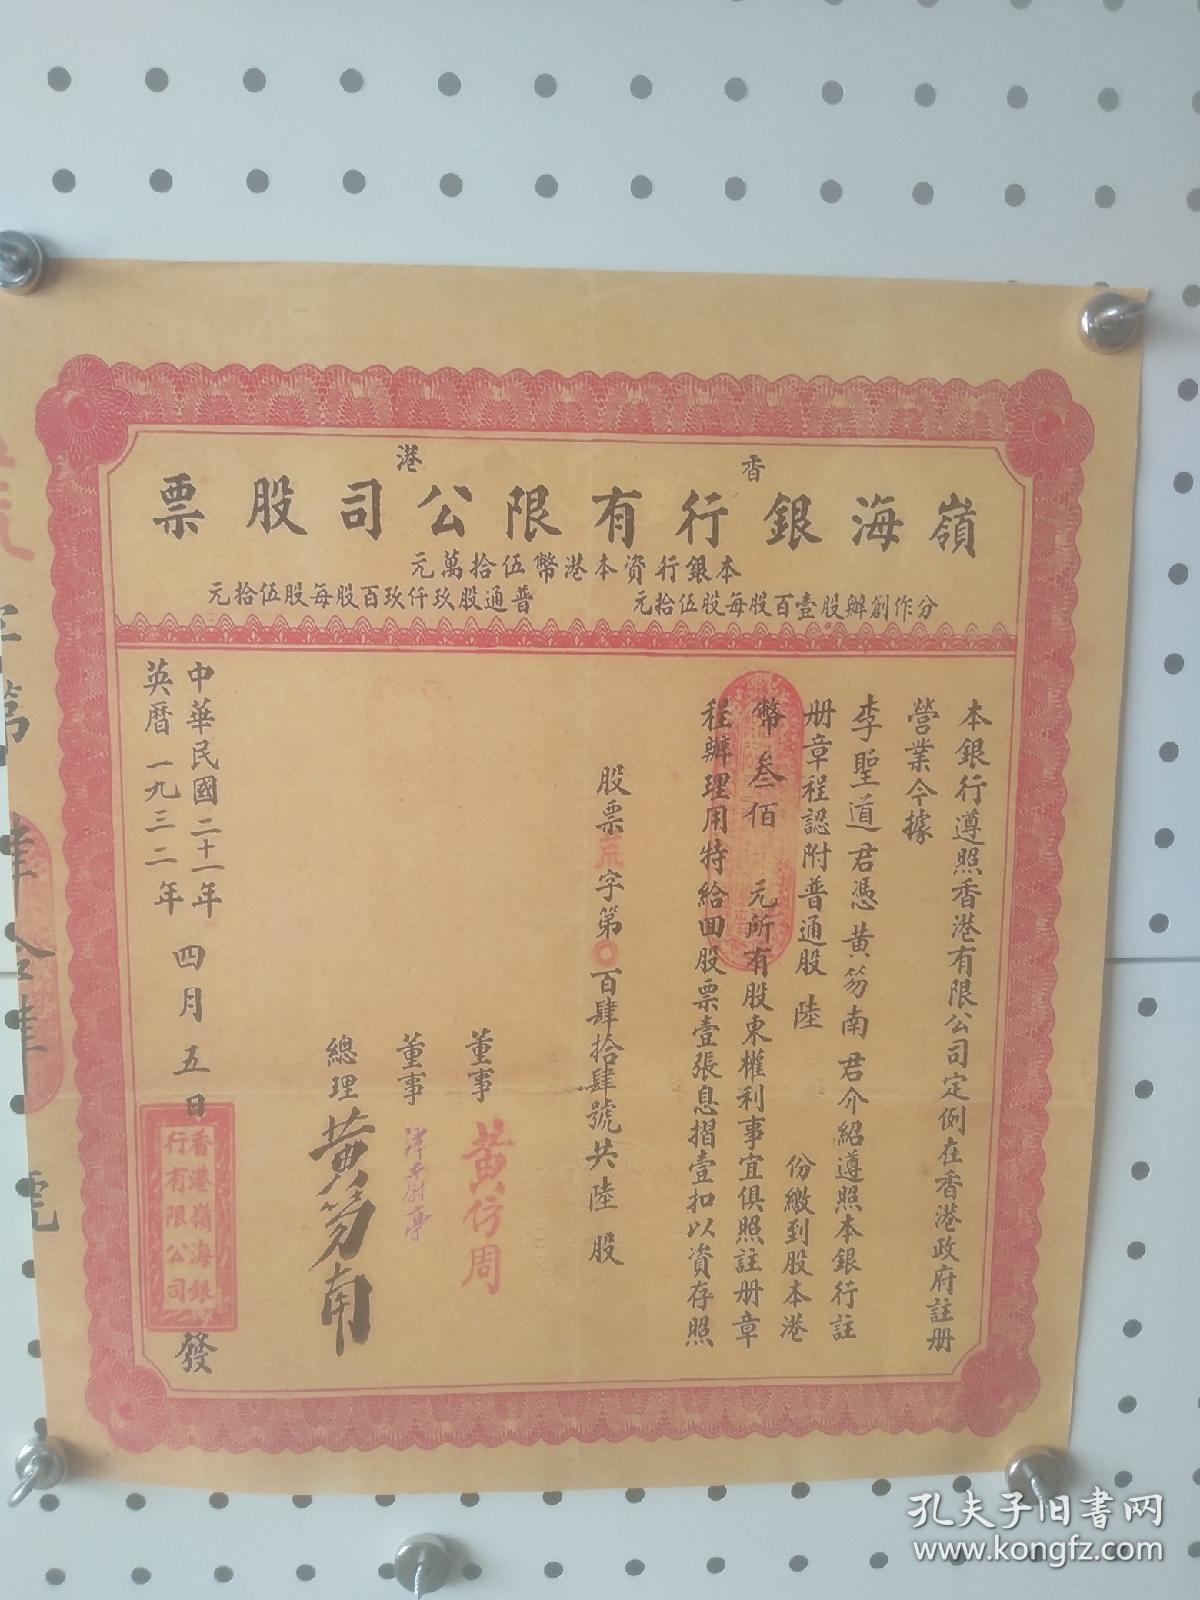 香港
嶺海銀行有限公司股票
本銀行資本港幣伍拾萬元
分作創辦股壹百股每股伍拾元
普通股玖仟玖百股每股伍拾元
本銀行遵照香港有限公司定例在香港政府註册
營業今據
李聖道君憑黃笏南君介紹遵照本銀行註
册章程認附普通股陸份繳到股本港
幣叁佰元所有股東權利事宜俱照註册章
程辦理用特給回股票壹張息摺壹扣以資存照
股票 字第〇百肆拾肆號共陸股
董事 黃仿周
董事
總理 黃笏南
中華民國二十一年四月五日
英曆一九三二年
發
香港嶺海銀
行有限公司
字第肆拾肆號
孔夫子旧书网
www.kongfz.com